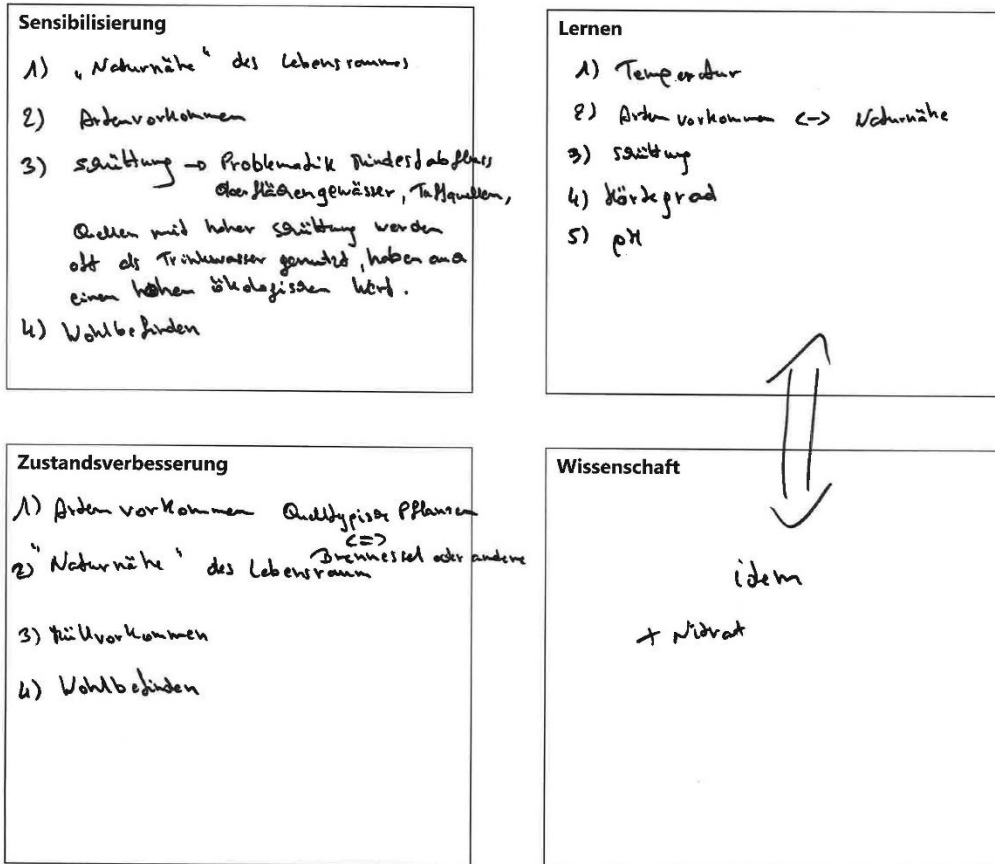 Sensibilisierung
1) „Naturnähe“ des Lebensraumes
2) Artenvorkommen
3) Schüttung → Problematik Mindestabfluss
Oberflächengewässer, Tuffquellen,
Quellen mit hoher Schüttung werden
oft als Trinkwasser genutzt, haben auch
einen hohen ökologischen Wert.
4) Wohlbefinden
Lernen
1) Temperatur
2) Artenvorkommen <-> Naturnähe
3) Schüttung
4) Härtegrad
5) pH
Zustandsverbesserung
1) Artenvorkommen Quelltypische Pflanzen
<=>
Brennessel oder andere
2) "Naturnähe" des Lebensraum
3) Müllvorkommen
4) Wohlbefinden
Wissenschaft
idem
+ Nitrat